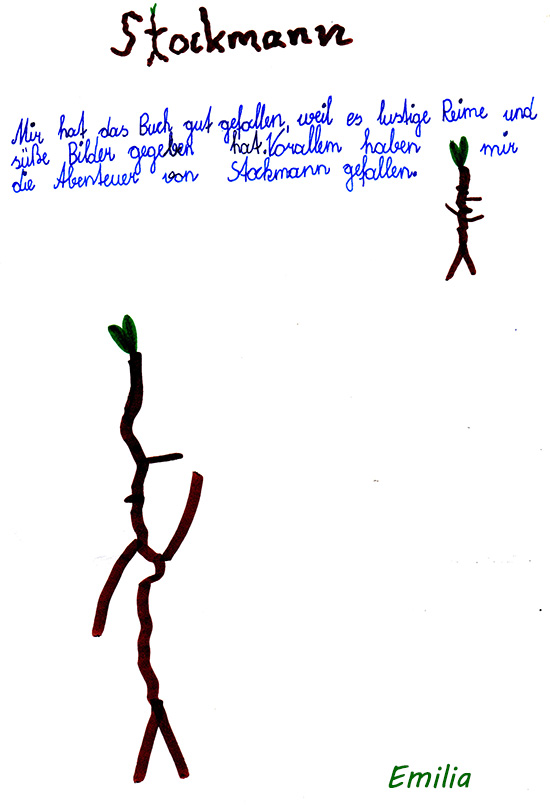 Stockmann
Mir hat das Buch gut gefallen, weil es lustige Reime und
süße Bilder gegeben hat. Vorallem haben mir
die Abenteuer von Stockmann gefallen.
Emilia